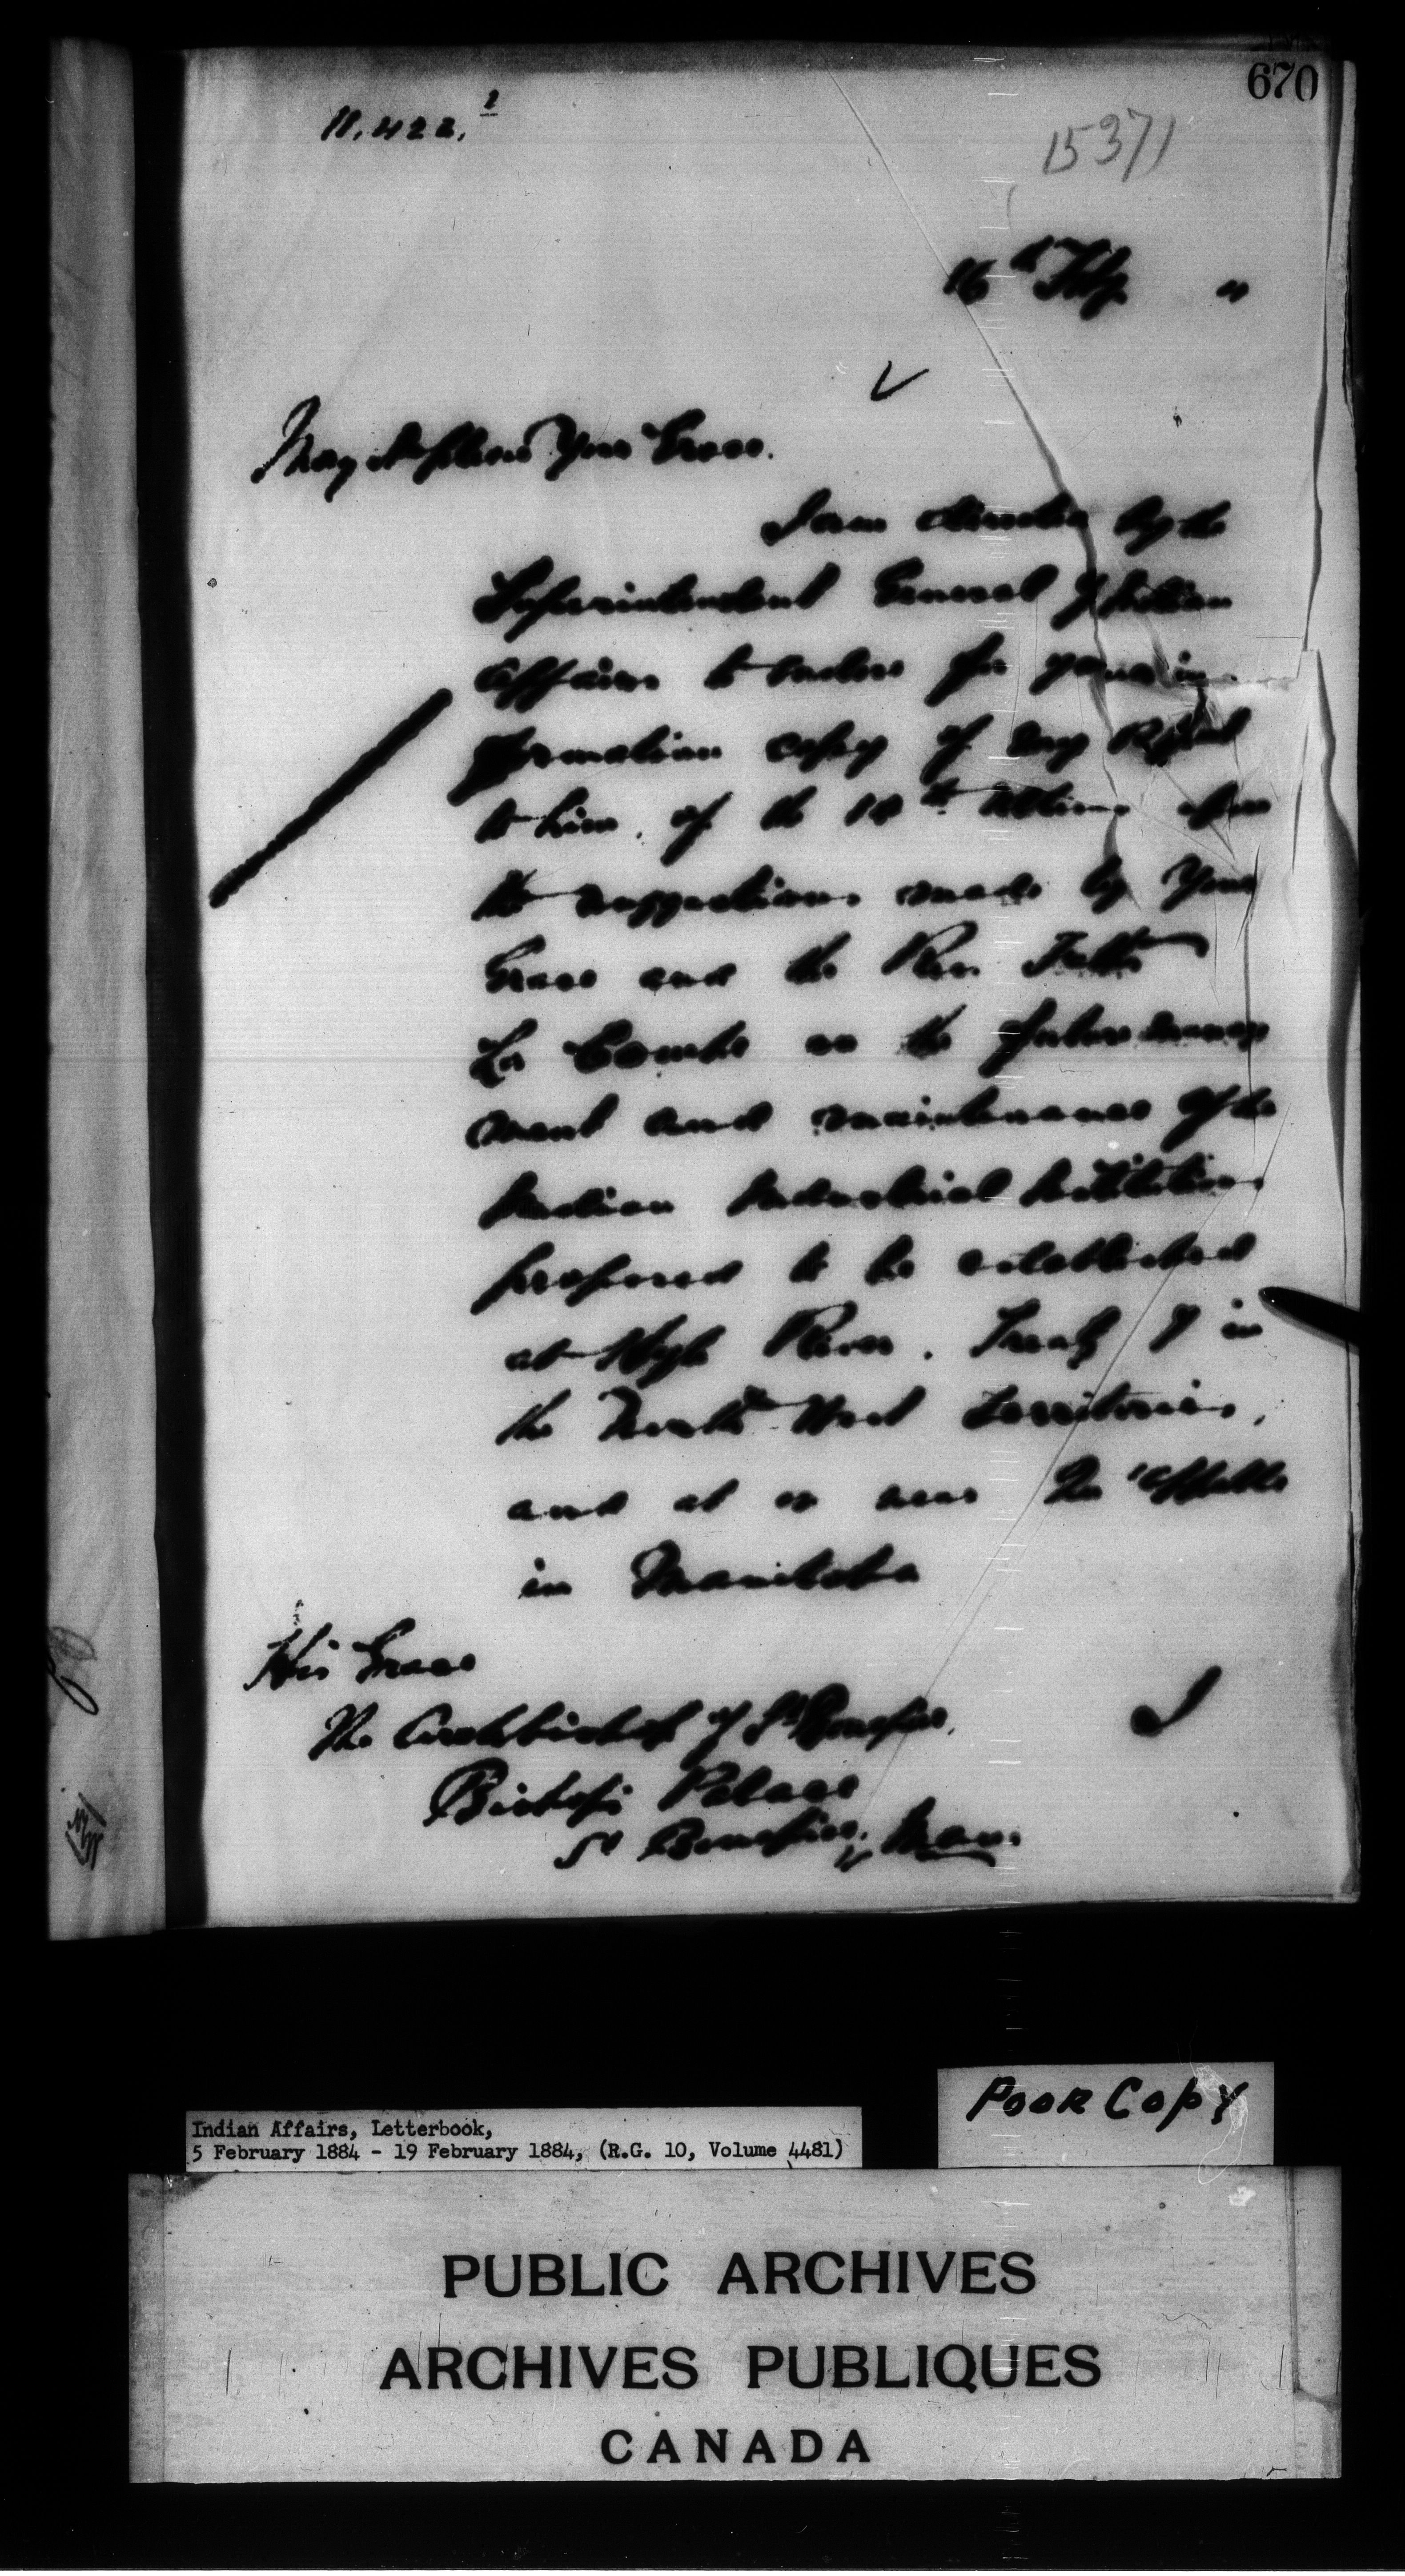 670
11.422.1
15371
16th Feby "
May it please Your Grace.
I am directed by the
Superintendent General of Indian
Affairs to enclose for your in-
formation copy of my Report
to him, of the 14th ultimo upon
the suggestions made by Your
Grace and the Rev. Father
La Combe as to the future manage
ment and maintenance of the
Indian Industrial Institutions
proposed to be established
at High River. Treaty 7 in
the North West Territories,
and at or near Qu'Appelle
in Manitoba
His Grace
The Archbishop of St Boniface,
I
Bishop's Palace
St Boniface, Man.
Poor Copy
Indian Affairs, Letterbook,
5 February 1884 - 19 February 1884, (R.G. 10, Volume 4481)
PUBLIC ARCHIVES
ARCHIVES PUBLIQUES
CANADA